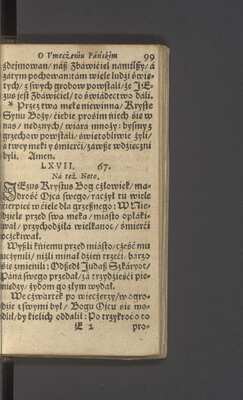 O Vmęczeniu Páńskim 99
zdeymowan/ náß Zbáwićiel namilßy/ á
zátym pochowan: tám wiele ludźi świe-
tych/ z swych grobow powstáli/ że JE-
zus jest Zbáwićiel/ to świádectwo dáli.
* Przez twá meke niewinna/ Kryste
Synu Boży/ ćiebie prośim niech sie w
nas/ nedznych/ wiárá mnoży: bysmy z
grzechow powstáli/ świetobliwie żyli/
á twey meki y śmierći/ záwße wdzieczni
byli. Amen.
LXVII. 67.
Ná też Notę.
JEzus Krystus Bog cżłowiek/ ma-
drość Oycá swego/ raczył tu wiele
ćierpieć w ćiele dla grzeßnego: W Nie-
dźiele przed swa meka/ miásto opłáki-
wał/ przychodźiłá wielkanoc/ śmierći
oczekiwał.
Wyßli k niemu przed miásto/ cześć mu
uczynili/ niźli minął dźień trzeći/ bárzo
sie zmienili: Odßedł Judaß Szkáryot/
Páná swego przedał/ zá trzydźieśći pie-
niedzy/ żydom go złym wydał.
We czwartek po wieczerzy/ w ogro-
dźie z swymi był/ Bogu Oycu sie mo-
dlił/ by kielich oddalił: Po trzykroć o to
E 2 pro-